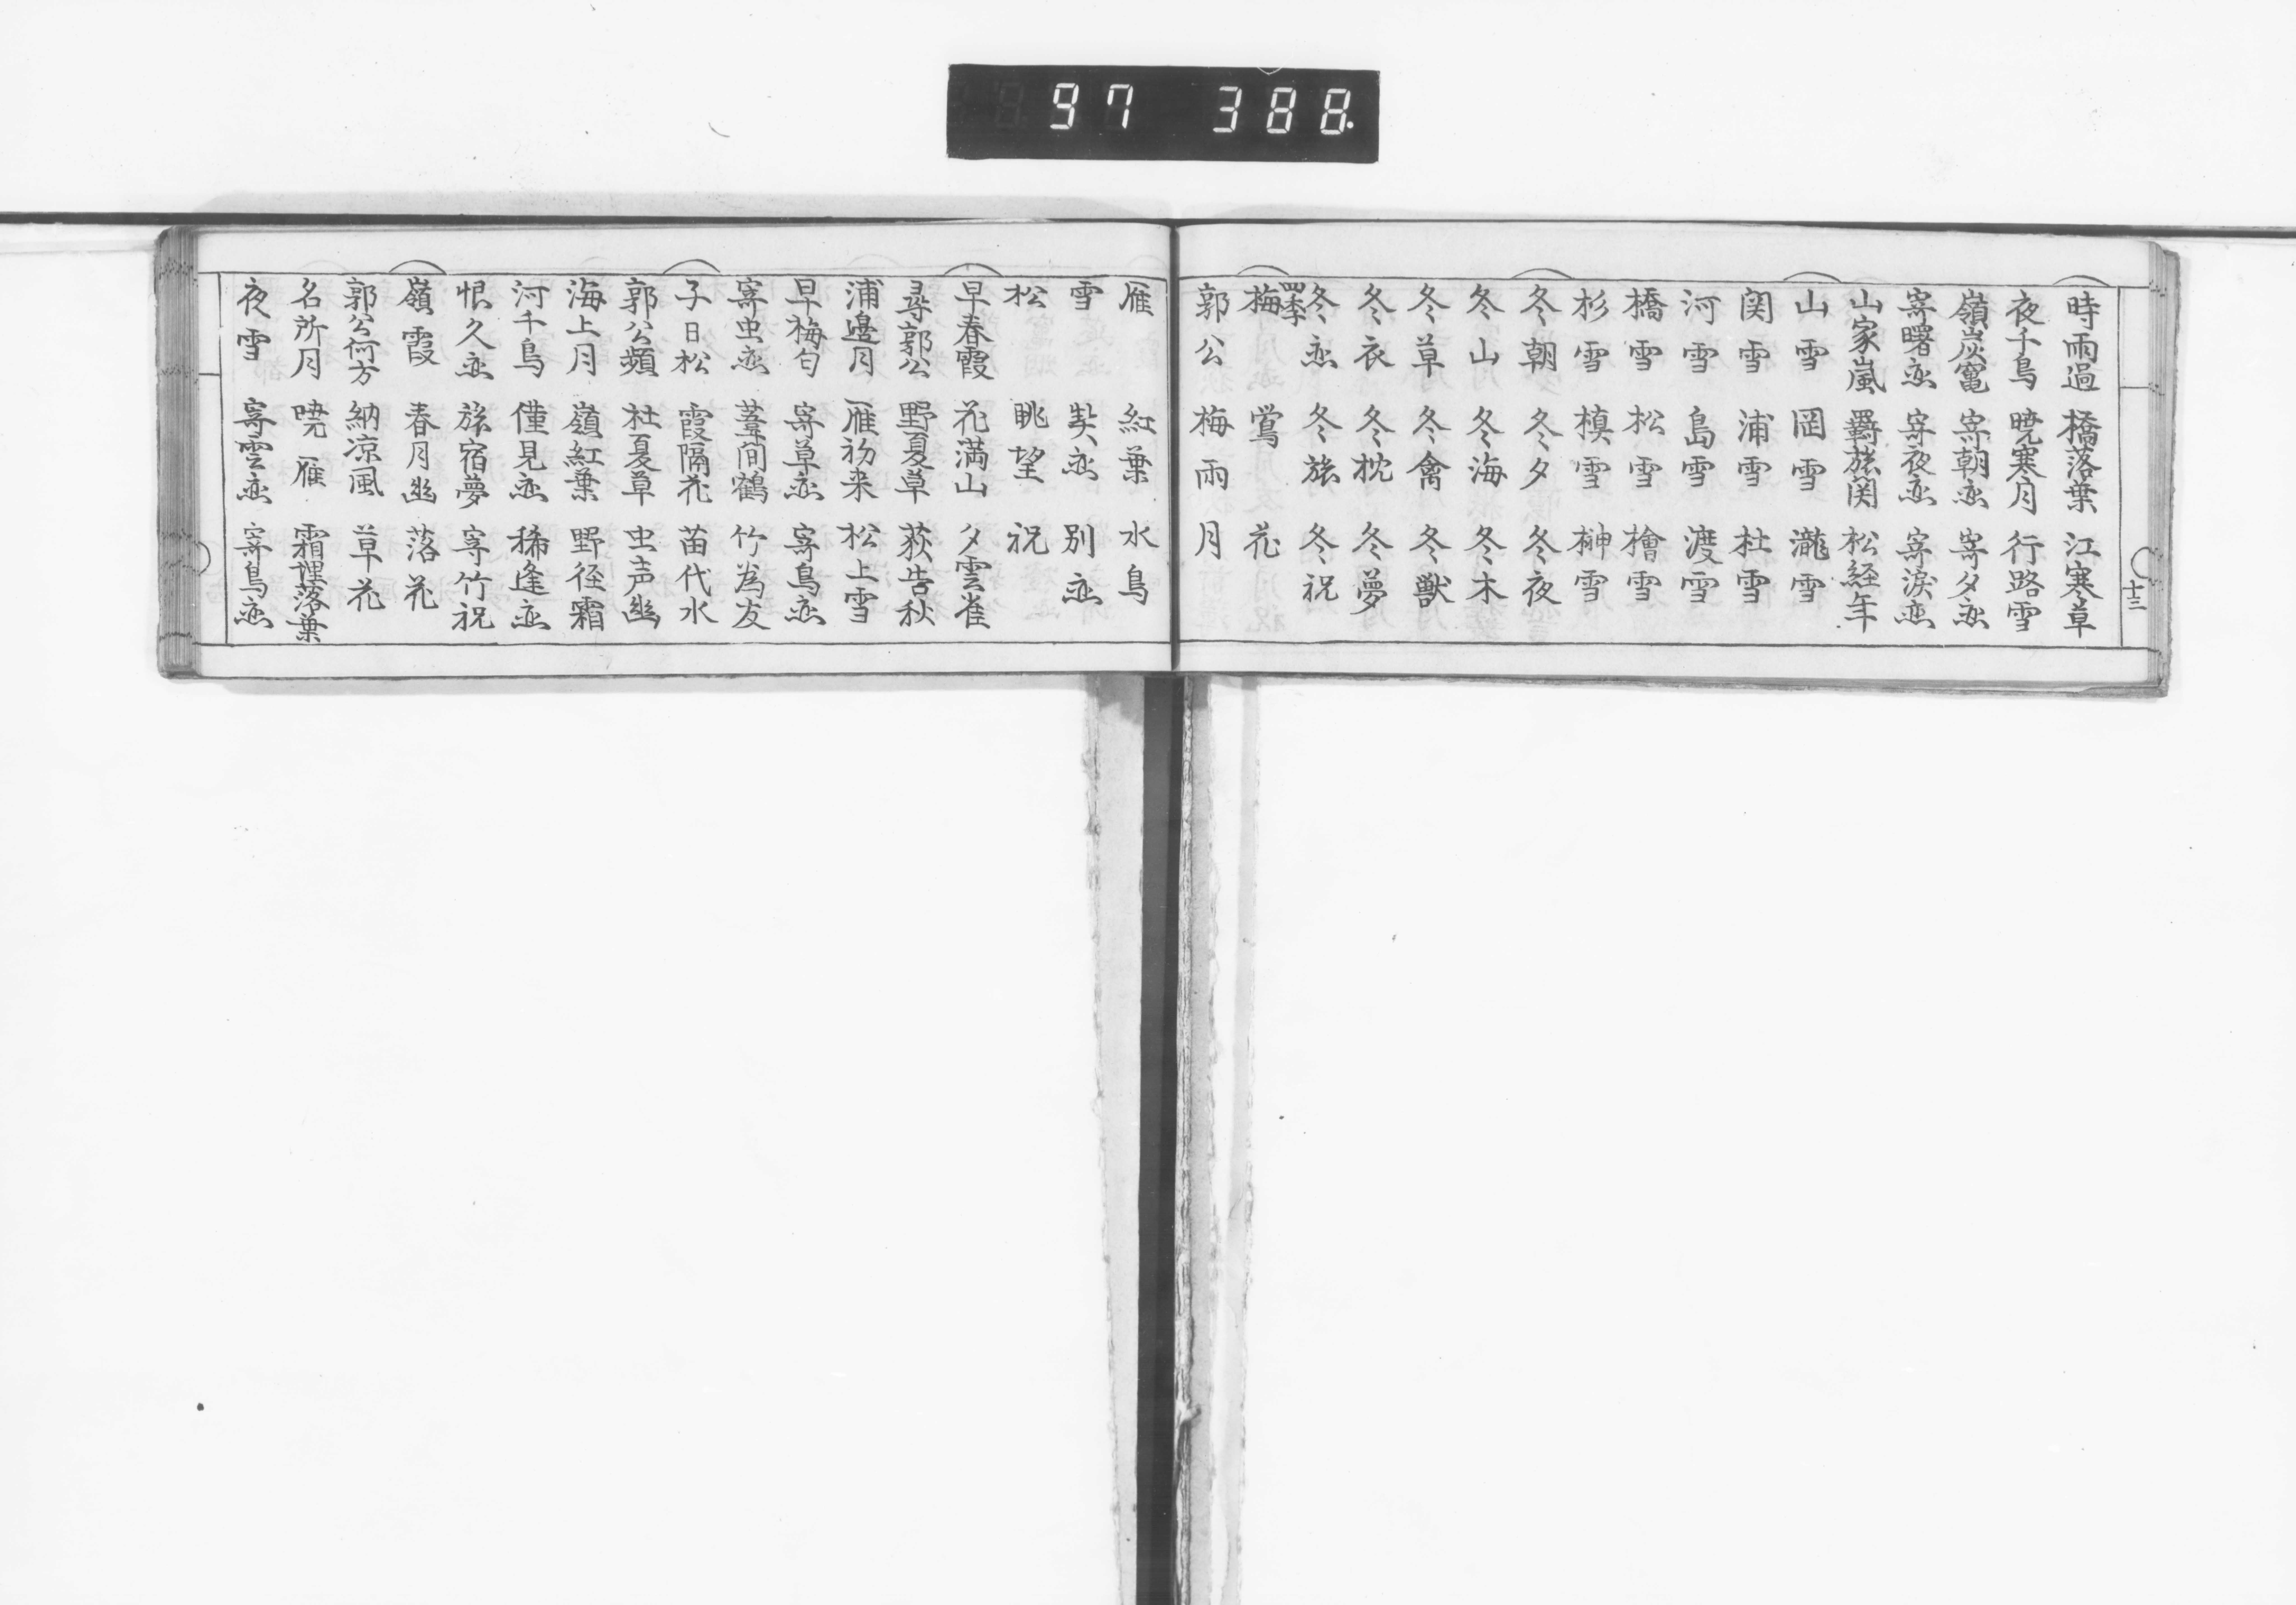 97 388.
時雨過 橋落葉 江寒草
夜千鳥 暁寒月 行路雪
嶺炭竃 寄朝恋 寄夕恋
寄曙恋 寄夜恋 寄涙恋
山家嵐 羇旅関 松経年
山雪 岡雪 瀧雪
関雪 浦雪 杜雪
河雪 島雪 渡雪
橋雪 松雪 檜雪
杉雪 槙雪 榊雪
冬朝 冬夕 冬夜
冬山 冬海 冬木
冬草 冬禽 冬獣
冬衣 冬枕 冬夢
冬恋 冬旅 冬祝
四季
梅 鶯 花
郭公 梅雨 月
十三
雁 紅葉 水鳥
雪 契恋 別恋
松 眺望 祝
早春霞 花満山 夕雲雀
尋郭公 野夏草 荻告秋
浦邊月 雁初来 松上雪
早梅匂 寄草恋 寄鳥恋
寄虫恋 葦間鶴 竹為友
子日松 霞隔花 苗代水
郭公頻 杜夏草 虫声幽
海上月 嶺紅葉 野径霜
河千鳥 僅見恋 稀逢恋
恨久恋 旅宿夢 寄竹祝
嶺霞 春月幽 落花
郭公何方 納凉風 草花
名所月 暁雁 霜埋落葉
夜雪 寄雲恋 寄鳥恋